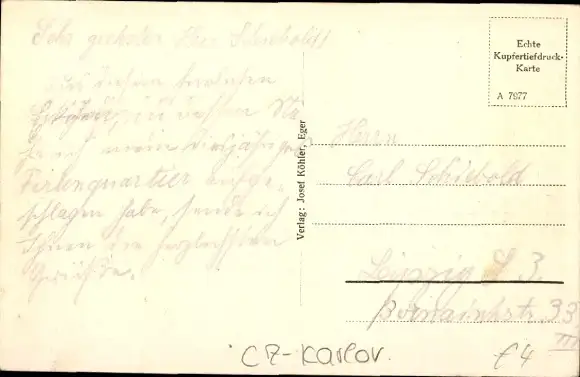 Sehr geehrter Herr Schiebold!
Aus diesem herrlichen
in dessen
ich mein diesjähriges
Ferienquartier aufge-
schlagen habe, sende ich
Ihnen die herzlichsten
Grüße.
Verlag: Josef Köhler, Eger
Echte
Kupfertiefdruck-
Karte
A 7677
Herrn
Carl Schiebold
Leipzig S 3
33
III
CZ-Karlov.
€4